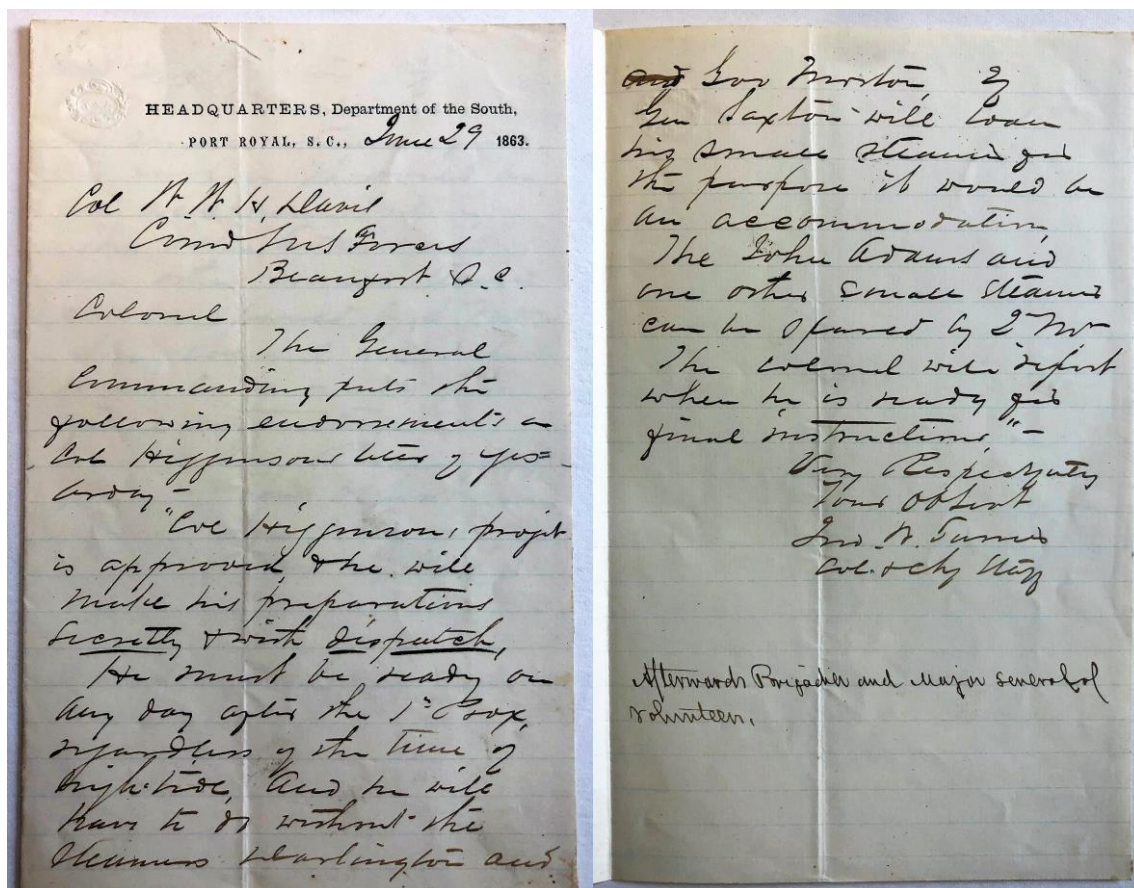 HEADQUARTERS, Department of the South,
PORT ROYAL, S. C., June 29 1863.
Col W. W. H. Davis
Comd Forces
Beaufort S. C.
Colonel
The General
Commanding puts the
following endorsements on
Col Higginsons letter of yes=
terday—
"Col Higginsons projet
is approved, & he will
make his preparations
secretly & with dispatch,
He must be ready on
any day after the 1st Prox,
regardless of the time of
high-tide, And he will
have to do without the
steamers Darlington and
and Gov Morton, If
Gen Saxton will loan
his small steamer for
the purpose it would be
an accommodation,
The John Adams and
one other small steamer
can be spared by 2
The colonel will report
when he is ready for
final instructions"—
Very Respectfully
Your Obt Svt
Jno. W. Turner
Col. & Chf Staff
Afterwards Brigadier and Major General of
volunteers.